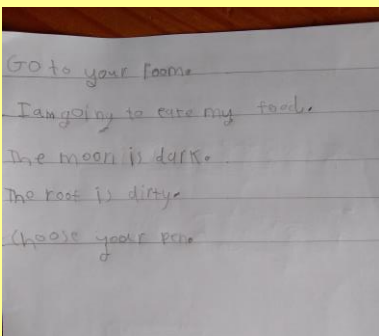 Go to your room.
I am going to eate my food.
The moon is dark.
The roof is dirty.
Choose your pen.